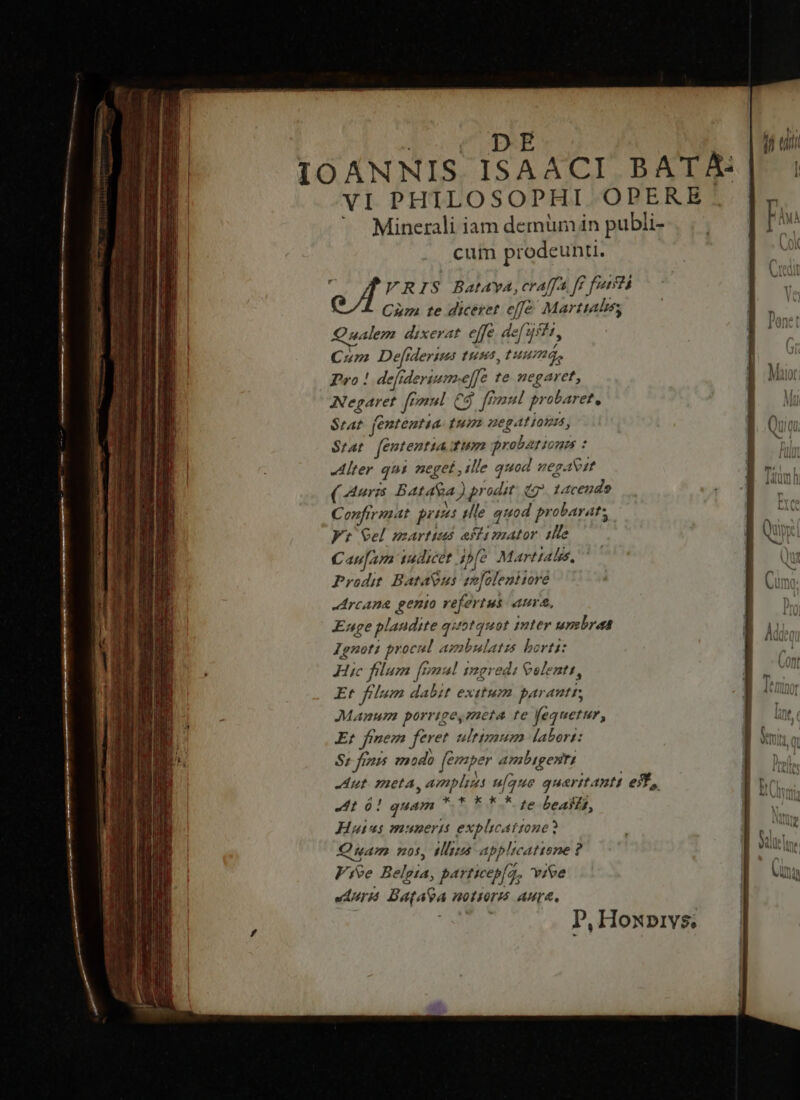 DE
IOANNIS ISAACI BATA-
VI PHILOSOPHI OPERE
Minerali iam demùm in publi-
cum prodeunti.
AVRIS Batava, crassa si fuisti
Cùm te diceret esse Martialis,
Qualem dixerat esse desijsti,
Cum Desiderius tuus, tuumq́,
Pro! desiderium esse te negaret,
Negaret simul & simul probaret,
Stat sententia tum negationis,
Stat sententia tum probationis:
Alter qui neget, ille quod negavit
(Auris Batava) prodit & tacendo
Confirmat priùs ille quod probarat;
Vt vel martius æstimator ille
Causam iudicet ipse Martialis,
Prodit Batavus insolentiore
Arcanæ genio refertus auræ,
Euge plaudite quotquot inter umbras
Ignoti procul ambulatis horti:
Hic filum simul ingredi volenti,
Et filum dabit exitum paranti;
Manum porrige, meta te sequetur,
Et finem feret ultimum labori:
Si finis modò semper ambigenti
Aut meta, ampliùs usque quæritanti est,
At ô! quam * * * * * te beasti,
Huius muneris explicatione?
Quam nos, illius applicatione?
Vive Belgia, particepsq́, vive
Auris Batava notioris auræ,
P, HONDIVS.
Fama
Credit
Ponet
Gr
Maior
Exce
Pro
Cont